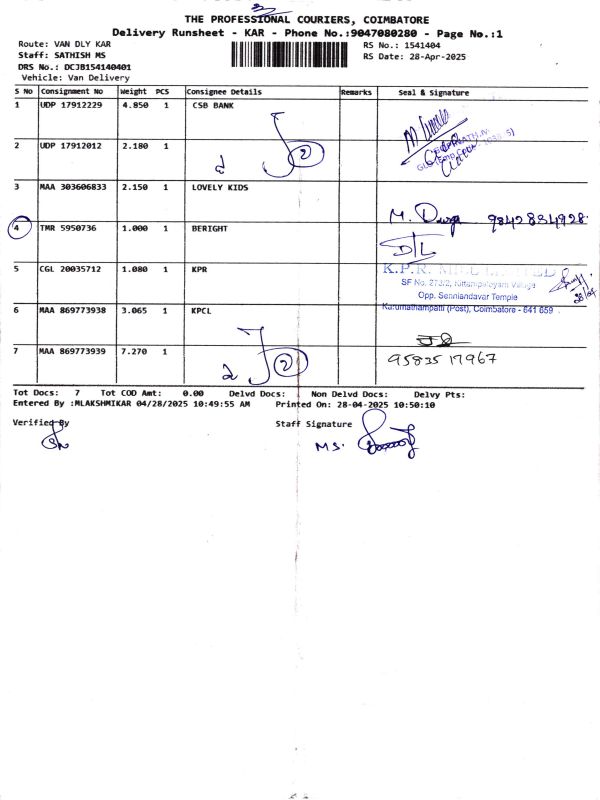 THE PROFESSIONAL COURIERS, COIMBATORE
Delivery Runsheet - KAR - Phone No.:9047080280 - Page No.:1
Route: VAN DLY KAR
RS No.: 1541404
Staff: SATHISH MS
RS Date: 28-Apr-2025
DRS No.: DCJB154140401
Vehicle: Van Delivery
S No Consignment No Weight PCS Consignee Details Remarks Seal & Signature
1 UDP 17912229 4.850 1 CSB BANK
2 UDP 17912012 2.180 1
2
3 MAA 303606833 2.150 1 LOVELY KIDS
M. Durga 9842884928
4 TMR 5950736 1.000 1 BERIGHT
D/L
5 CGL 20035712 1.080 1 KPR
K.P.R. MILL LIMITED
SF No. 273/2, Kittampalayam Village
Opp. Senniandavar Temple
Karumathampatti (Post), Coimbatore - 641 659
28/04
6 MAA 869773938 3.065 1 KPCL
7 MAA 869773939 7.270 1
2 2
95835 17967
Tot Docs: 7 Tot COD Amt: 0.00 Delvd Docs: Non Delvd Docs: Delvy Pts:
Entered By :MLAKSHMIKAR 04/28/2025 10:49:55 AM Printed On: 28-04-2025 10:50:10
Verified By Staff Signature
MS.